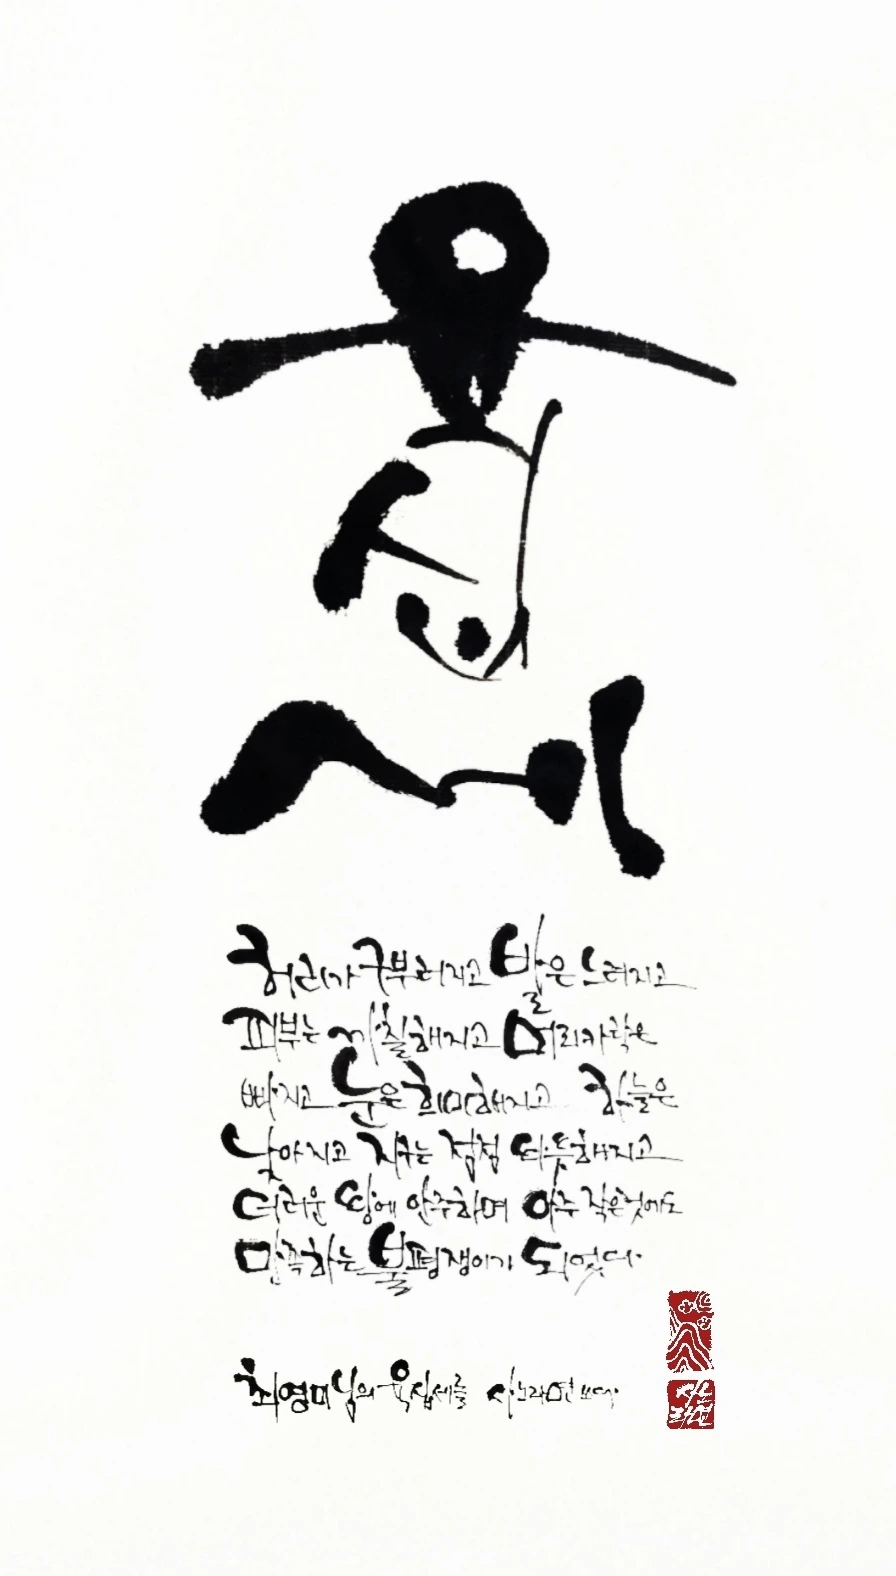 육
십
세
허리가 구부러지고 발은 느려지고
피부는 까칠해지고 머리카락은
빠지고 눈은 희미해지고 하늘은
낮아지고 지구는 점점 따뜻해지고
더러운 땅에 안주하며 아주 작은것에도
만족하는 불평쟁이가 되었다.
최영미님의 육십세를 쓰다